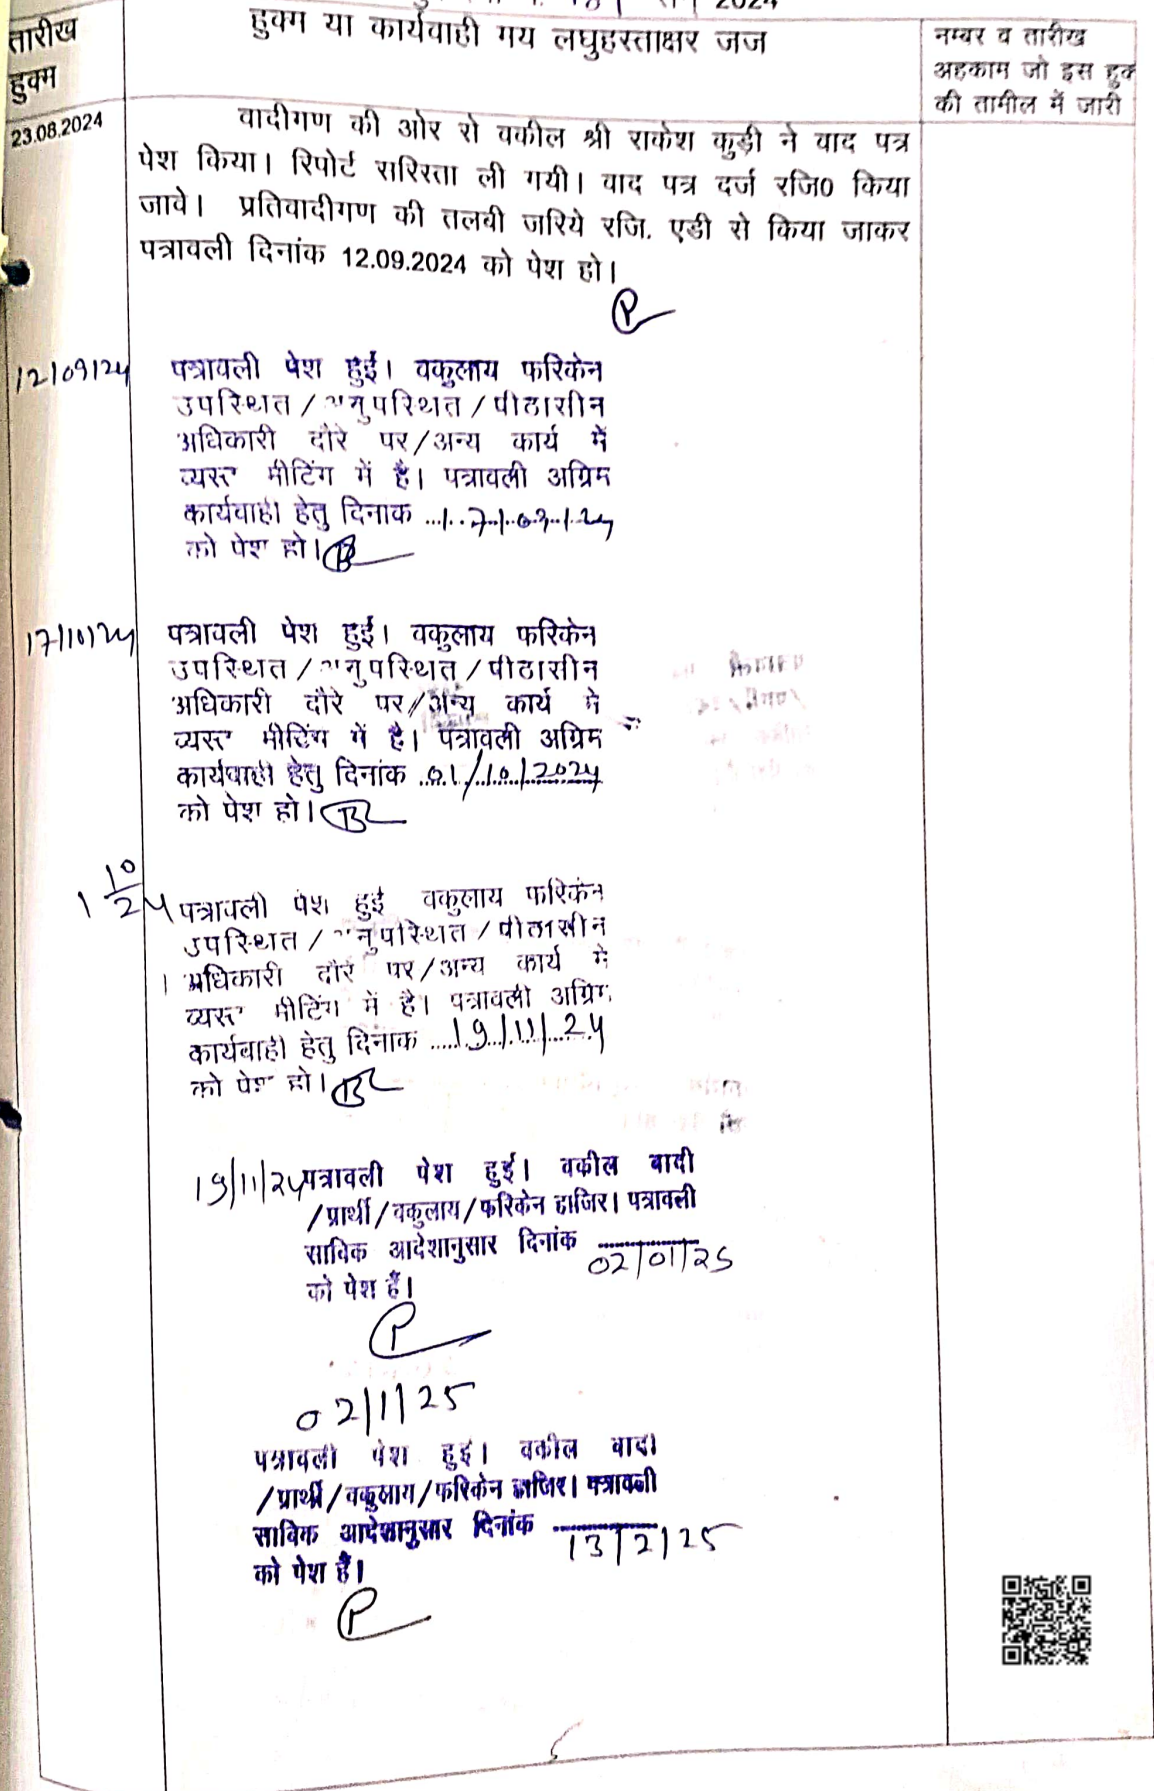 2024
तारीख
हुक्म
हुक्म या कार्यवाही गय लघुहस्ताक्षर जज
नम्बर व तारीख
अहकाम जो इस हुक
की तामील में जारी
23.08.2024
वादीगण की ओर रो वकील श्री राकेश कुड़ी ने वाद पत्र
पेश किया। रिपोर्ट सरिस्ता ली गयी। वाद पत्र दर्ज रजि0 किया
जावे। प्रतिवादीगण की तलबी जरिये रजि. एडी से किया जाकर
पत्रावली दिनांक 12.09.2024 को पेश हो।
12/09/24
पत्रावली पेश हुई। वकुलाय फरिकेन
उपस्थित / अनुपस्थित / पीठासीन
अधिकारी दौरे पर/अन्य कार्य में
व्यस्त मीटिंग में है। पत्रावली अग्रिम
कार्यवाही हेतु दिनाक
को पेश हो।
17/10/24
पत्रावली पेश हुई। वकुलाय फरिकेन
उपस्थित / अनुपस्थित / पीठासीन
अधिकारी दौरे पर/अन्य कार्य मे
व्यस्त मीटिंग में है। पत्रावली अग्रिम
कार्यवाही हेतु दिनांक 01/10/2024
को पेश हो।
1 10/24
पत्रावली पेश हुई वकुलाय फरिकेन
उपस्थित / अनुपस्थित / पीठासीन
अधिकारी दौरे पर/अन्य कार्य मे
व्यस्त मीटिंग में है। पत्रावली अग्रिम
कार्यवाही हेतु दिनांक 19/11/24
को पेश हो।
19/11/24 पत्रावली पेश हुई। वकील वादी
/प्रार्थी/वकुलाय/फरिकेन हाजिर। पत्रावली
साविक आदेशानुसार दिनांक 02/01/25
को पेश हैं।
02/1/25
पत्रावली पेश हुई। वकील वादी
/प्रार्थी/वकुलाय/फरिकेन हाजिर। पत्रावली
साविक आदेशानुसार दिनांक 13/2/25
को पेश हैं।